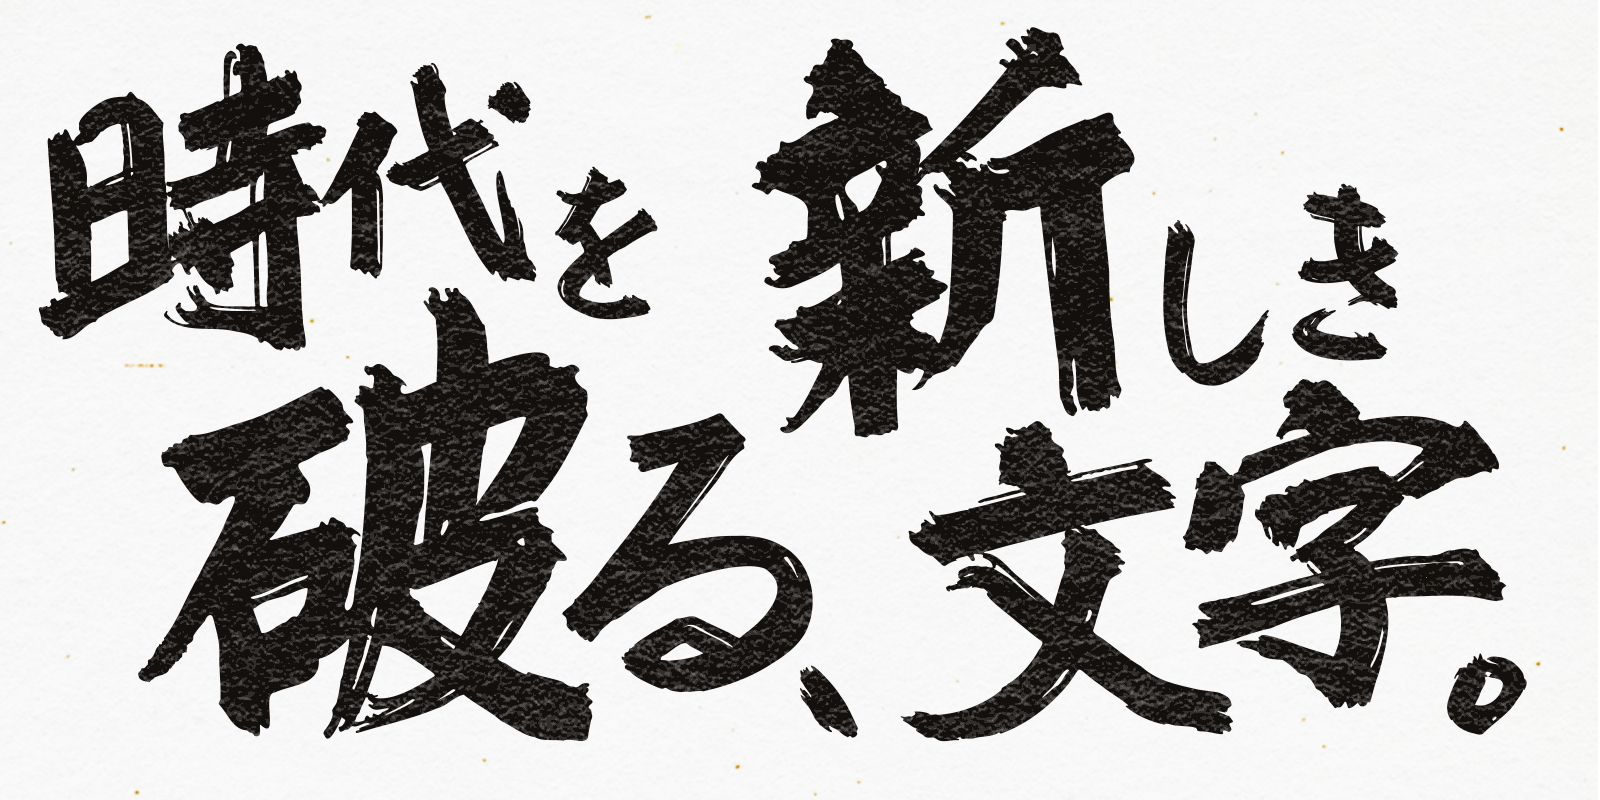 時代を
破る、
新しき
文字。